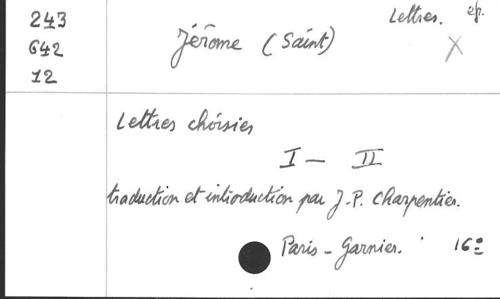 243
642
12
Lettres. ep.
Jérôme (Saint)
X
Lettres choisies
I - II
traduction et introduction par J.-P. Charpentier.
Paris - Garnier. 16º